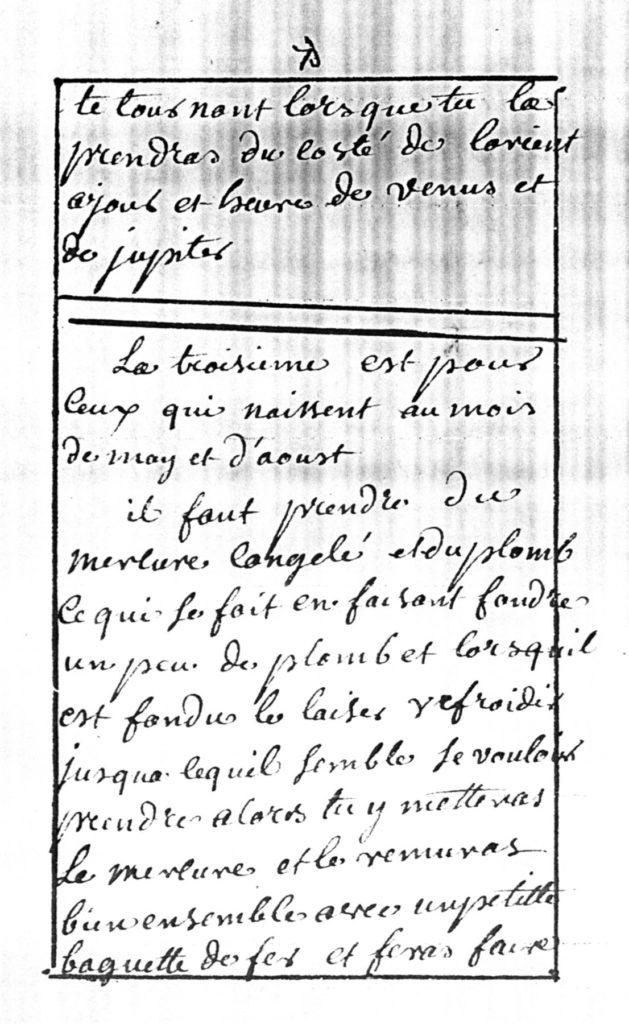 te tournant lorsque tu la
prendras du costé de lorient
a jour et heure de venus et
de jupiter
La troisieme est pour
ceux qui naissent au mois
de may et d'aoust
il faut prendre du
mercure congelé et du plomb
ce qui se fait en faisant fondre
un peu de plomb et lorsquil
est fondu le laiser refroidir
jusqua lequil semble se vouloir
prendre alors tu y metteras
le mercure et le remuras
bien ensemble avec un petitte
baguette de fer et feras faire